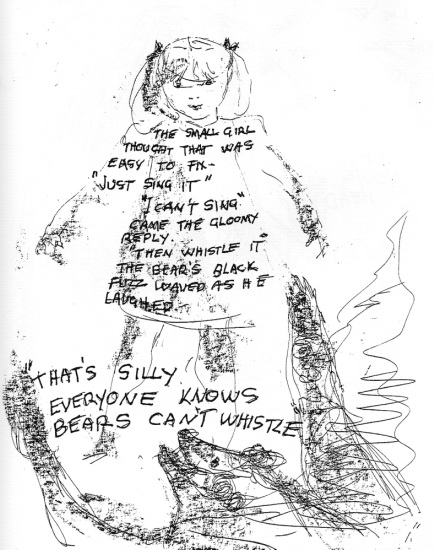 THE SMALL GIRL
THOUGHT THAT WAS
EASY TO FIX-
"JUST SING IT"
"I CAN'T SING"
CAME THE GLOOMY
REPLY.
"THEN WHISTLE IT"
THE BEAR'S BLACK
FUZZ WAVED AS HE
LAUGHED.
"THAT'S SILLY
EVERYONE KNOWS
BEARS CAN'T WHISTLE"